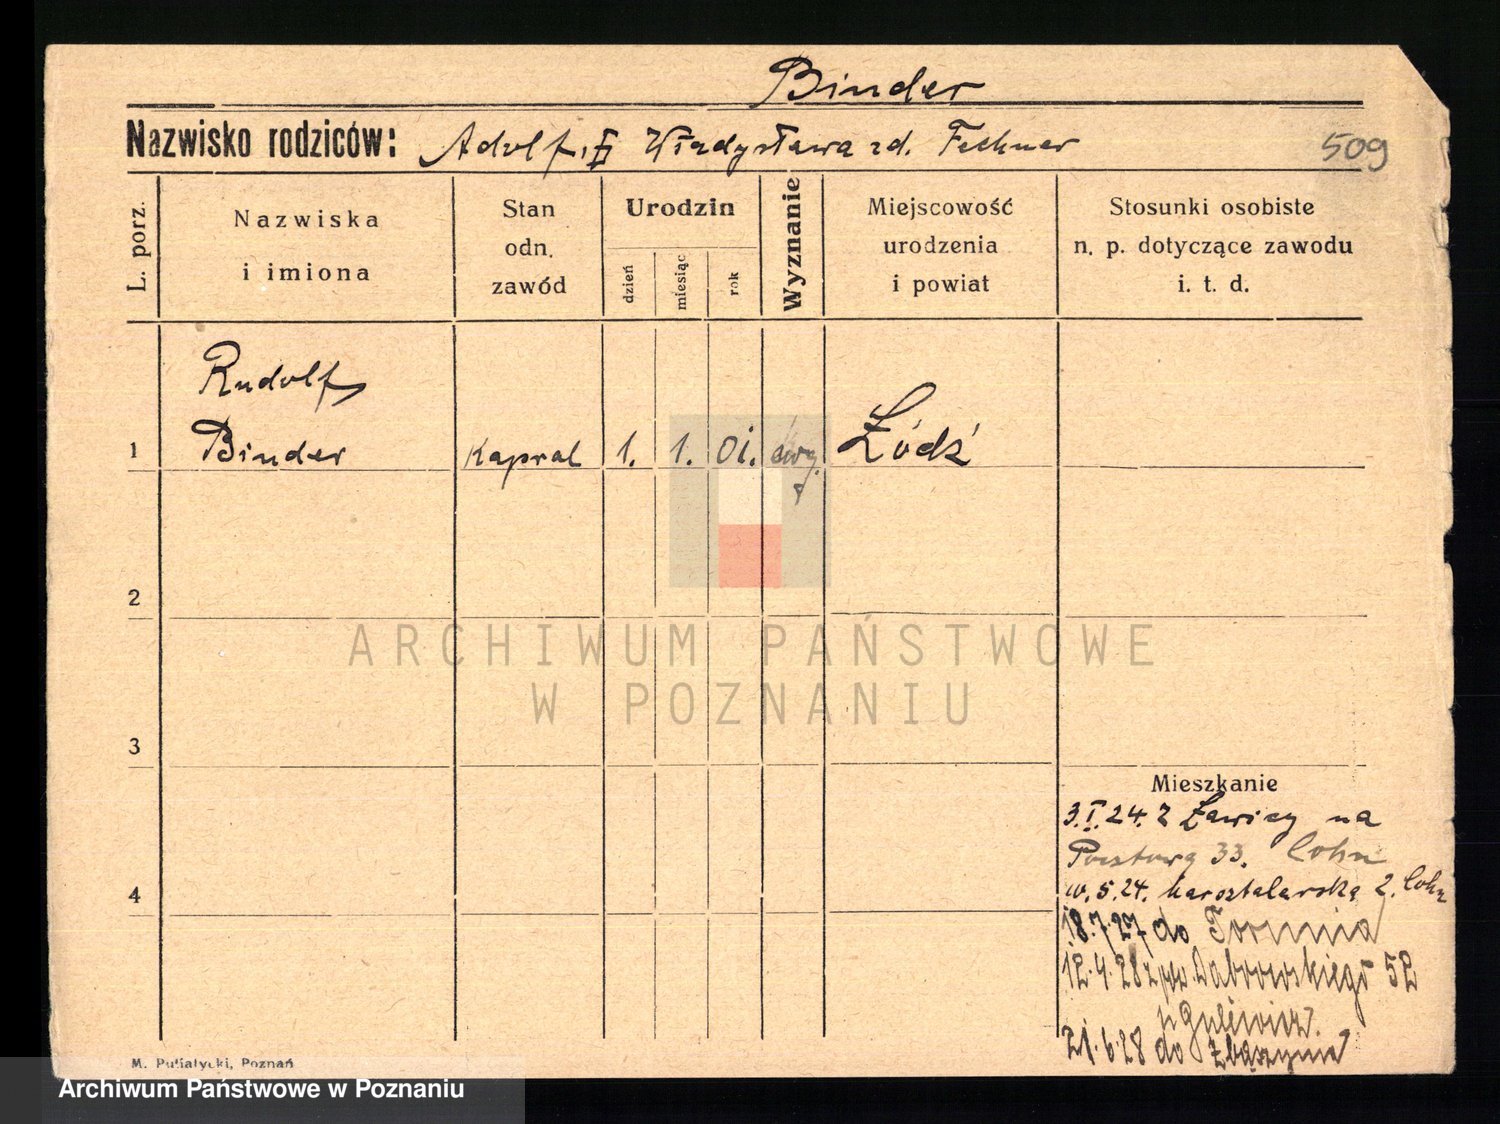 Binder
Nazwisko rodziców: Adolf, Władysława zd. Fechner
509
L. porz.
Nazwiska
i imiona
Stan
odn.
zawód
Urodzin
dzień
miesiąc
rok
Wyznanie
Miejscowość
urodzenia
i powiat
Stosunki osobiste
n. p. dotyczące zawodu
i. t. d.
Rudolf
1 Binder Kapral 1. 1. 01. Łódź
2
ARCHIWUM PAŃSTWOWE
W POZNANIU
3
Mieszkanie
3.I.24. z Ławicy na
33. Cohn
4
5.24. 2. Cohn
18.7.27 do Torunia
12.4.28 z Dąbrowskiego 52
21.6.28 do Zbąszynia
M. Putiatycki, Poznań
Archiwum Państwowe w Poznaniu